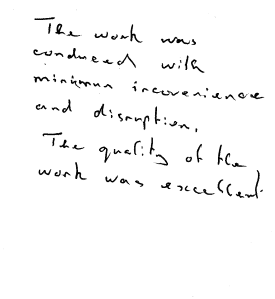 The work was
conduced with
minimun incovenience
and disruption.
The quality of the
work was excellent